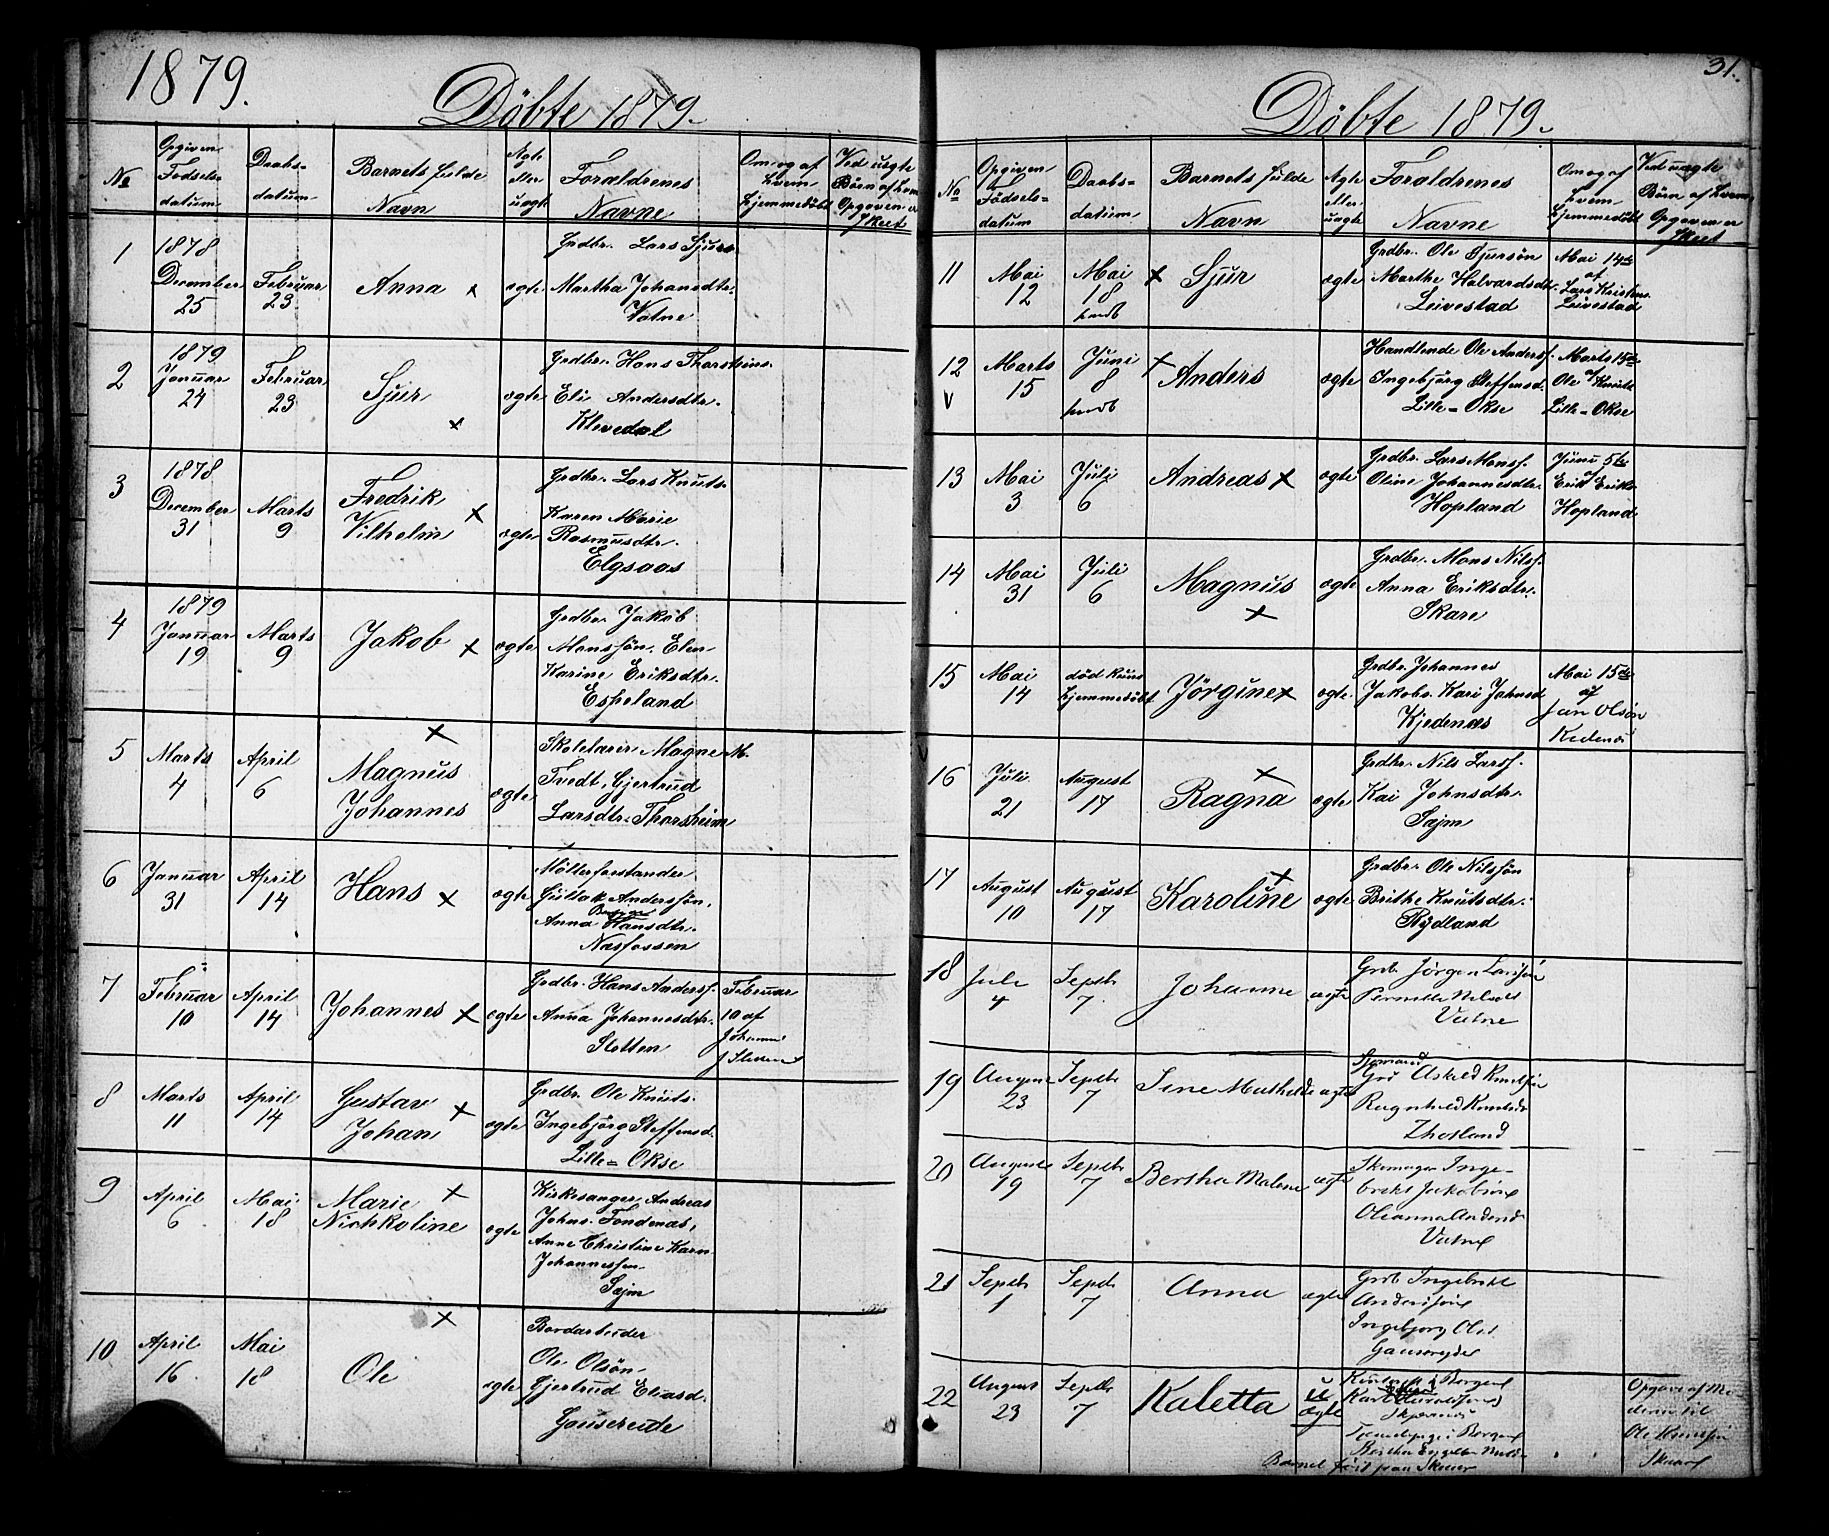 1879.
Döbte 1879.
No
Opgiven Fødsels- datum
Daabs- datum
Barnets fulde Navn
Ægte eller uægte
Forældrenes Navne
Om og af hvem hjemmedöbt
Ved uægte Börn af hvem Opgaven er skeet
1
1878 December 25
Februar 23
Anna x
ægte
Grdbr. Lars Sjurs.
Martha Johansdtr.
Vatne
2
1879 Januar 24
Februar 23
Sjur x
ægte
Grdbr. Hans Thorsteins.
Eli Andersdtr.
Klevedal
3
1878 December 31
Marts 9
Fredrik Vilhelm x
ægte
Grdbr. Lars Knuts.
Karen Marie
Rasmusdtr.
Elgsaas
4
1879 Januar 19
Marts 9
Jakob x
ægte
Grdbr. Jakob
Monssön. Elen
Karine Eriksdtr.
Espeland
5
Marts 4
April 6
x
Magnus Johannes
ægte
Skolelærer Magne M.
Tvedt, Gjertrud
Larsdtr. Thorsheim
6
Januar 31
April 14
Hans x
ægte
Möllerforstander
Gullak Anderssön,
Anna Hansdtr.
Næsfossen
7
Februar 10
April 14
Johannes x
ægte
Grdbr. Hans Andersf.
Anna Johannesdtr.
Sletten
Februar 10 af
8
Marts 11
April 14
Gustav Johan x
ægte
Grdbr. Ole Knuts.
Ingebjörg Steffensd.
Lille-Okse
9
April 6
Mai 18
Marie x
Nichkoline
ægte
Kirkesanger Andreas
Johns. Tondenæs,
Anne Christine Karn
Johannessen
Sæjm
10
April 16
Mai 18
x
Ole
ægte
Bordarbeider
Ole Olsön
Gjertrud Eliasd.
Gauserede
31.
Döbte 1879.
No
Opgiven Födsels- datum
Daabs- datum
Barnets fulde Navn
Ægte eller uægte
Forældrenes Navne
Om og af hvem hjemmedöbt
Ved uægte Börn af hvem Opgaven er skeet
11
Mai 12
Mai 18
x Sjur
ægte
Grdbr. Ole Sjursön
Marthe Halvardsdtr.
Leivestad
Mai 14de af
Lars Kristens.
Leivestad
12
Marts 15
Juni 8
x Anders
ægte
Handlende Ole Andersf.
Ingebjörg Steffensd.
Lille-Okse
Marts 15de af
Ole Knuts
Lille-Okse
13
Mai 3
Juli 6
Andreas x
ægte
Grdbr. Lars Monsf.
Oline Johannesdtr.
Hopland
Juni 5te af
Erik Eriks.
Hopland
14
Mai 31
Juli 6
Magnus x
ægte
Grdbr. Mons Nilsf.
Anna Eriksdtr.
Skare
15
Mai 14
död kuns hjemmedöbt
Jörgine x
ægte
Grdbr. Johannes
Jakobs. Kari Johnsd
Kjedenæs
Mai 15de af
Jan Olsön
16
Juli 21
August 17
x
Ragna
ægte
Grdbr. Nils Larsf.
Kai Johnsdtr.
Sæjm
17
August 10
August 17
x
Karoline
ægte
Grdbr. Ole Nilssön
Brithe Knutsdtr.
Rydland
18
Juli 4
Septb 7.
Johanne
ægte
Grdb. Jörgen Larssön
Pernille Nilsdt
Vatne
19
August 23
Septb. 7
Sine Mathilde
ægte
Sjömand
Askild Knutssön
Ragnhild Knutsdt
20
August 19
Septb. 7
Bertha Malene
ægte
Skomager Inge-
brikt Jakobsön
Oleanna Andersd
Vatne
21
Septb 1
Septb. 7
Anna
ægte
Grdb Ingebrikt
Anderssön
Ingebjorg Olsd.
22
August 23
Septb. 7
Kaletta
u ægte
i Bergen
Opgave af Mo-
deren til
Barnet